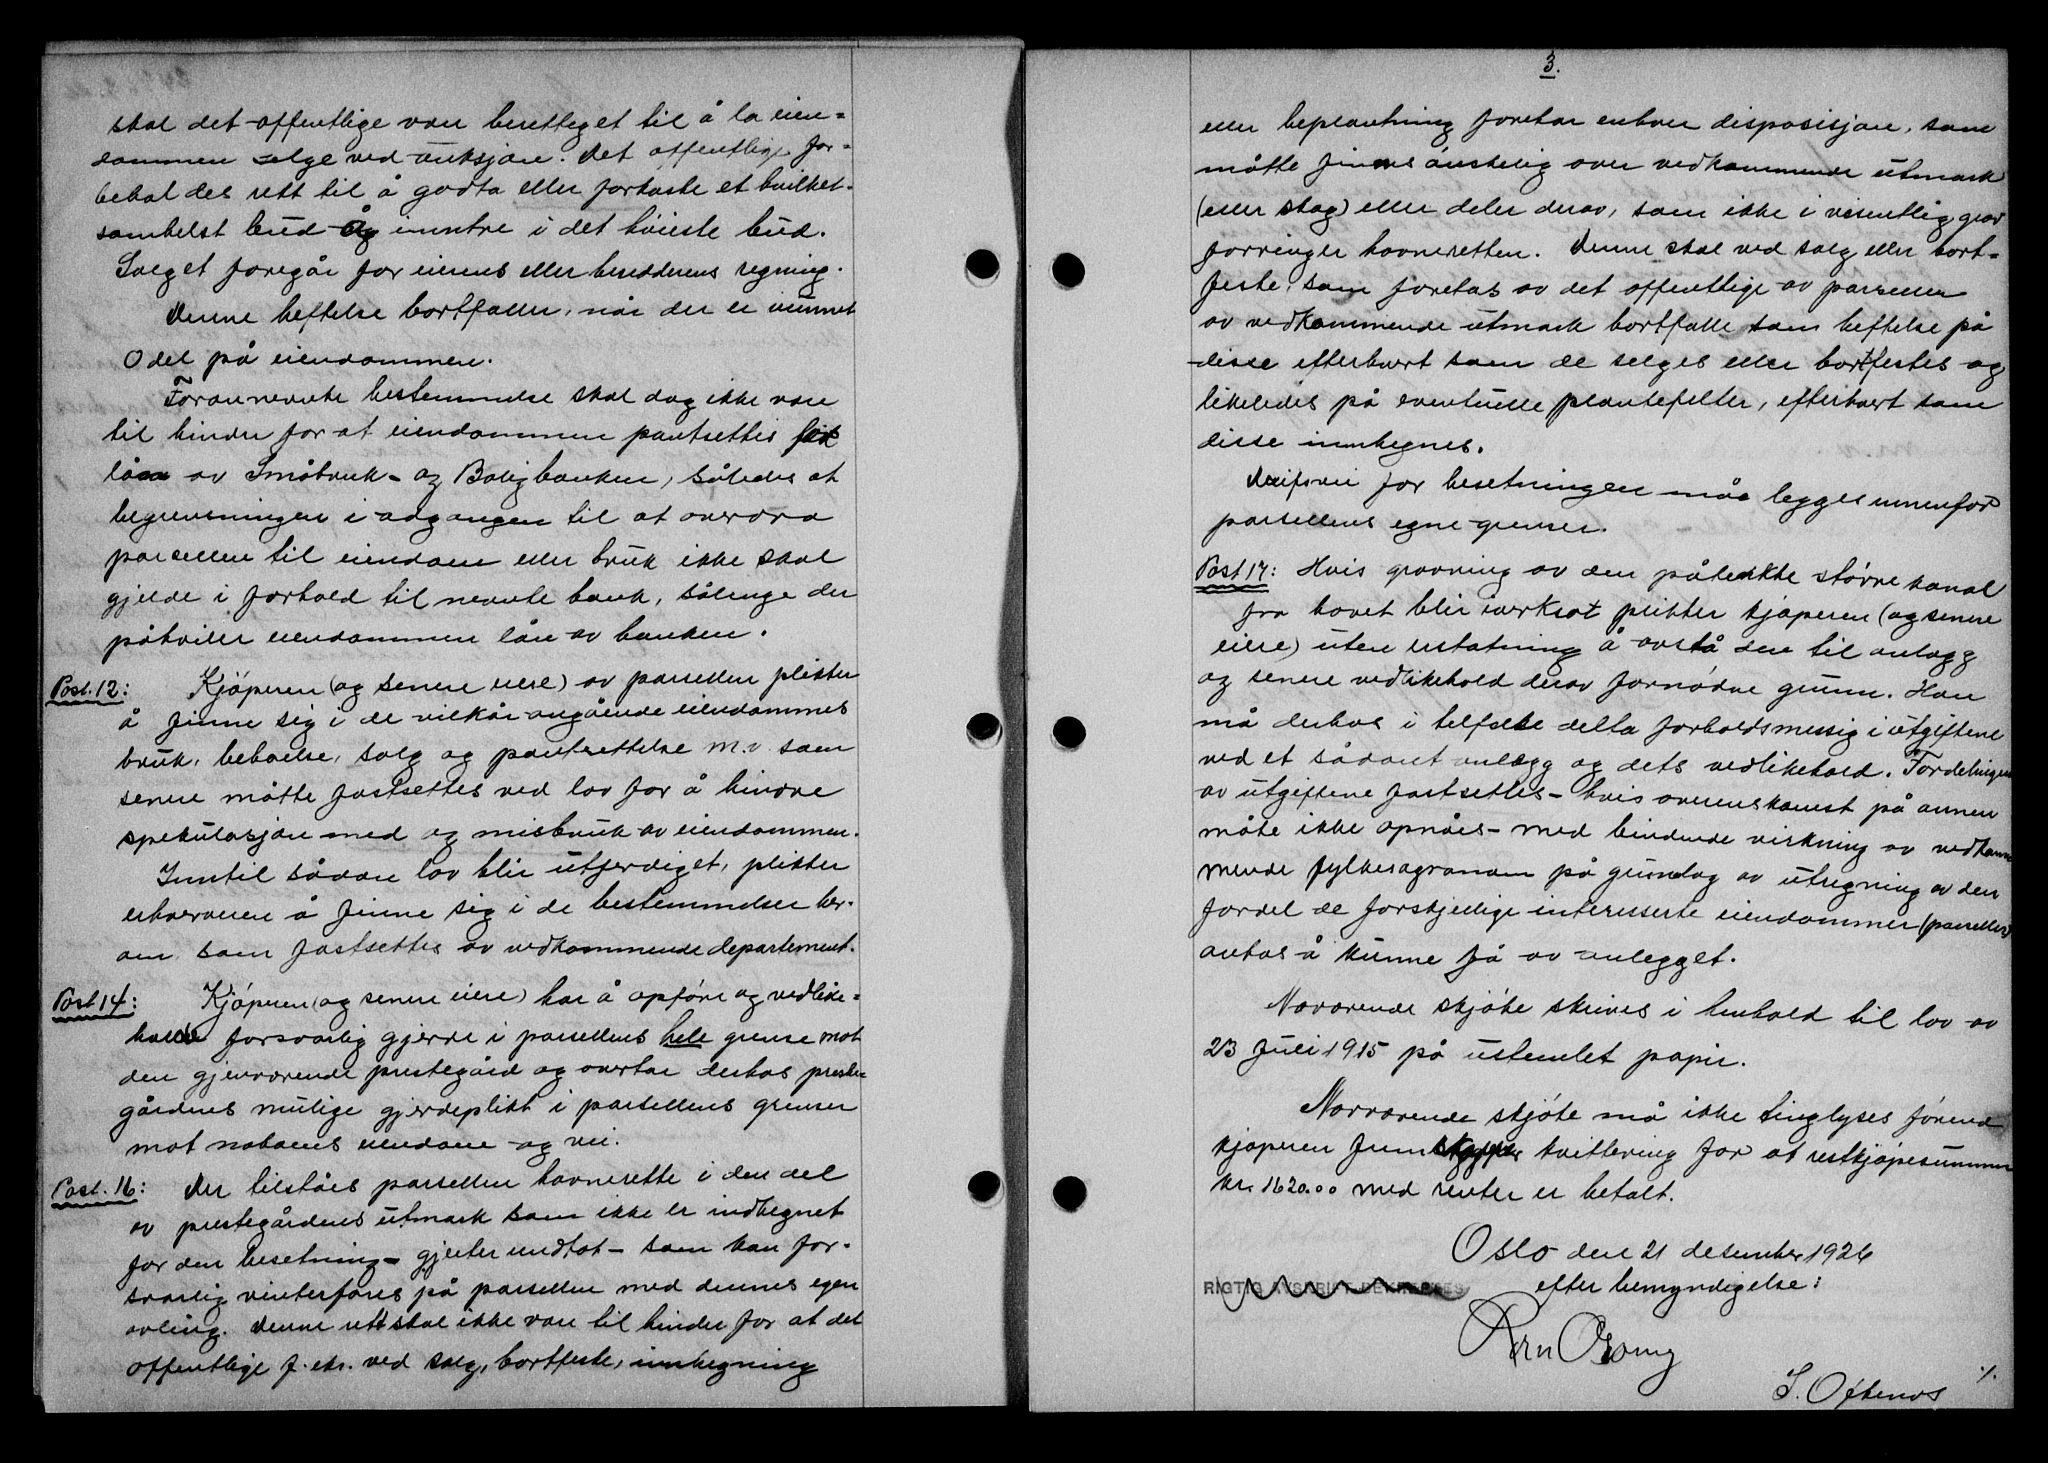 skal det offentlige være berettiget til å la eien=
dommen selge ved auksjon. Det offentlige for=
behol des rett til å godta eller forkaste et hvilket-
somhelst bud og inntre i det høieste bud.
Salget foregår for eierens eller besidderens regning.
Denne heftelse bortfaller, når der er vunnet
Odel på eiendommen.
Forannevnte bestemmelse skal dog ikke være
til hinder for at eiendommen pantsettes for
lån av Småbruk- og Boligbanken, således at
begrensningen i adgangen til at overdra
parsellen til eiendom eller bruk ikke skal
gjelde i forhold til nevnte bank, sålenge der
påhviler eiendommen lån av banken.
Post. 12: Kjøperen (og senere eiere) av parsellen plikter
å finne sig i de vilkår angående eiendommes
bruk, behoelse, salg og pantsettelse m.v. som
senere måtte fastsettes ved lov for å hindre
spekulasjon med og misbruk av eiendommen.
Inntil sådan lov blir utferdiget, plikter
erhververen å finne sig i de bestemmelser her-
om som fastsettes av vedkommende departement.
Post 14: Kjøperen (og senere eiere) har å opføre og vedlike=
holde forsvarlig gjerde i parsellens hele grense mot
den gjenværende prestegård og overtar derhos preste=
gårdens mulige gjerdeplikt i parsellens grenser
mot naboens eiendom og vei.
Post. 16: Der tilståes parsellen havnerette i den del
av prestegårdens utmark som ikke er indhegnet
for den besetning - gjeiter undtat - som kan for-
svarlig vinterføres på parsellen med dennes egen
avling. Denne rett skal ikke være til hinder for at det
offentlige f. eks. ved salg, bortfeste, innhegning
3.
eller beplantning foretar enhver disposisjon, som
måtte finnes ønskelig over vedkommende utmark
(eller skog) eller deler derav, som ikke i vesentlig grad
forringer havneretten. Denne skal ved salg eller bort=
feste, som foretas av det offentlige av parseller
av vedkommende utmark bortfalle som heftelse på
disse efterhvert som de selges eller bortfestes og
likeledes på eventuelle plantefelter, efterhvert som
disse innhegnes.
Driftsvei for besetningen må legges innenfor
parsellens egne grenser.
Post 17: Hvis gravning av den påtenkte større kanal
fra havet blir iverksat plikter kjøperen (og senere
eiere) uten erstatning å avstå den til anlegg
og senere vedlikehold derav fornødne grunn. Han
må derhos i tilfelle delta forholdsmessig i utgiftene
ved et sådant anlegg og dets vedlikehold. Fordelingen
av utgiftene fastsettes - hvis overenskomst på annen
måte ikke opnåes - med bindende virkning av vedkom
mende fylkesagronom på grunnlag av utregning av den
fordel de forskjellige interesserte eiendommer (parseller)
antas å kunne få av anlegget.
Nærværende skjøte skrives i henhold til lov av
23 Juli 1915 på ustemlet papir.
Nærværende skjøte må ikke tinglyses førend
kjøperen frem kvittering for at restkjøpesummen
kr. 1620.00 med renter er betalt.
Oslo den 21 desember 1926
RIGTIG AVSKRIFT BEKREFTES efter bemyndigelse:
S. Oftenes